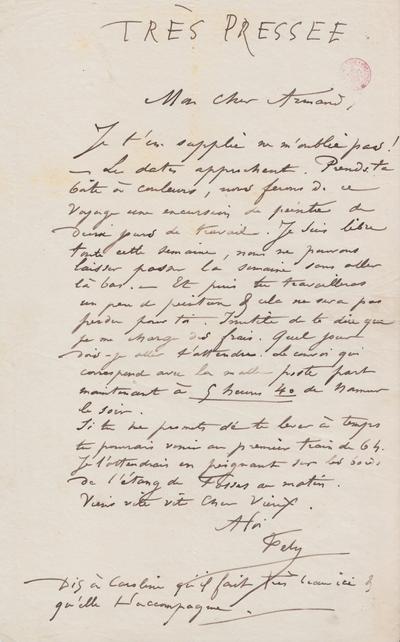 TRÈS PRESSEE
Mon cher Armand,
Je t'en supplie ne m'oublie pas !
– Les dates approchent. Prends ta
boîte à couleurs, nous ferons de ce
voyage une excursion de peintre de
jours de travail. Je suis libre
toute cette semaine, nous ne pouvons
laisser passer la semaine sans aller
là bas. – Et puis tu travailleras
un peu de peinture & cela ne sera pas
perdu pour toi. Inutile de te dire que
je me charge des frais. Quel jour
dois-je aller t'attendre. Le convoi qui
correspond avec la malle poste part
maintenant à 5 heures 40 de Namur
le soir.
Si tu me promets de te lever à temps
tu pourrais venir au premier train de 6 h.
Je t'attendrais en peignant sur les
de l'étang de Fosses au matin.
Viens vite vite Cher Vieux.
A toi
Fely
Dis à Caroline qu'il fait très beau ici &
qu'elle t'accompagne